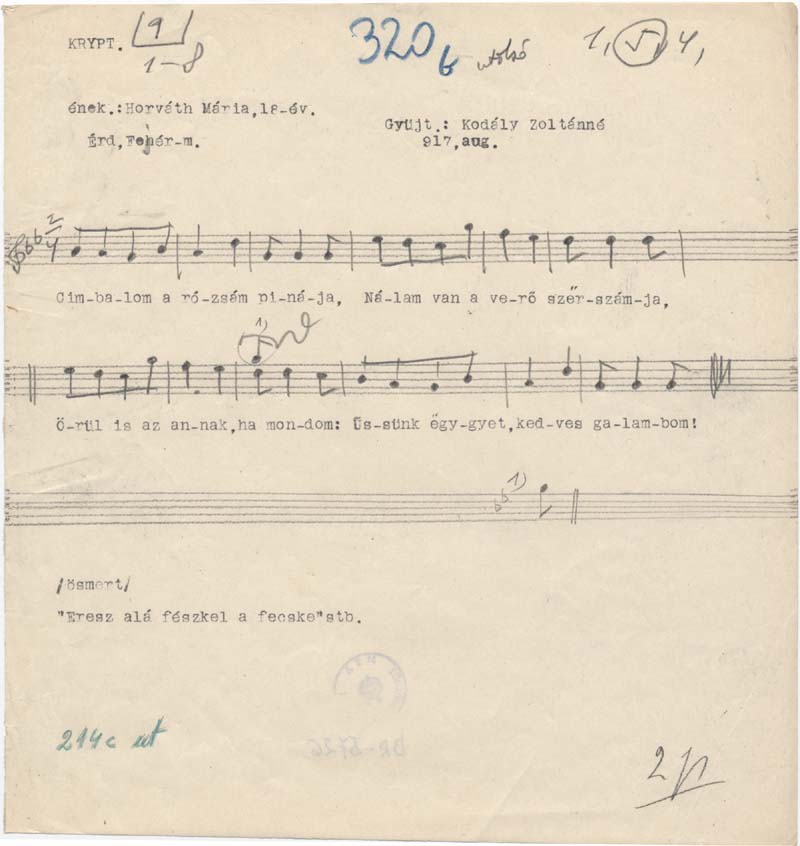 KRYPT. 9 320 b utolsó 1, 5, 4,
1-8
ének.:Horváth Mária,18-év.
Gyüjt.: Kodály Zoltánné
Érd,Fehér-m.
917,aug.
2/4
Cim-ba-lom a ró-zsám pi-ná-ja, Ná-lam van a ve-rő szër-szám-ja,
1)
Ö-rül is az an-nak,ha mon-dom: Üs-sünk ëgy-gyet,ked-ves ga-lam-bom!
1)
/ösmert/
"Eresz alá fészkel a fecske"stb.
214c ut